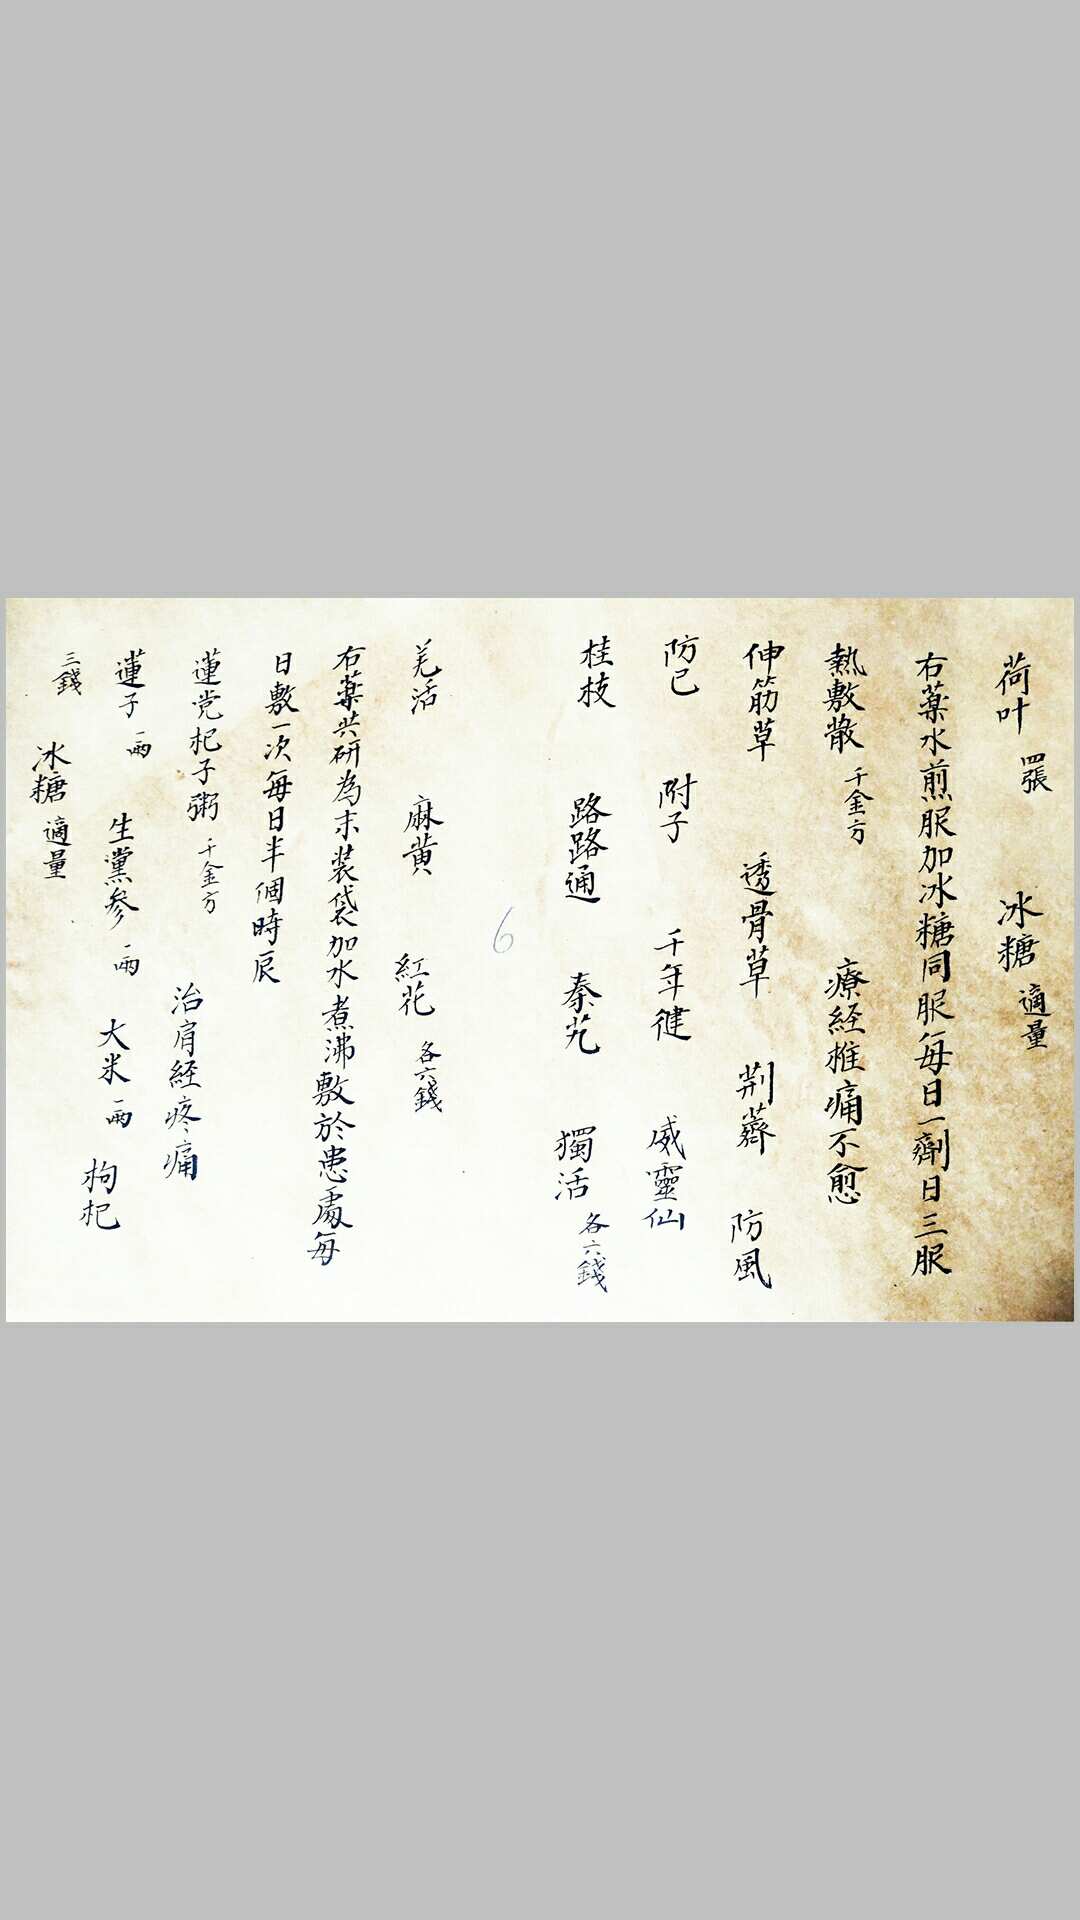 荷叶 四張 冰糖 適量
右薬水煎服加冰糖同服每日一劑日三服
熱敷散 千金方 療経椎痛不愈
伸筋草 透骨草 荆薺 防風
防已 附子 千年健 威靈仙
桂枝 路路通 秦艽 獨活 各六錢
6
羌活 麻黄 紅花 各六錢
右薬共研為末装袋加水煮沸敷於患處每
日敷一次每日半個時辰
蓮党杞子粥 千金方 治肩経疼痛
蓮子 一兩 生黨参 一兩 大米 一兩 枸杞
三錢 冰糖 適量